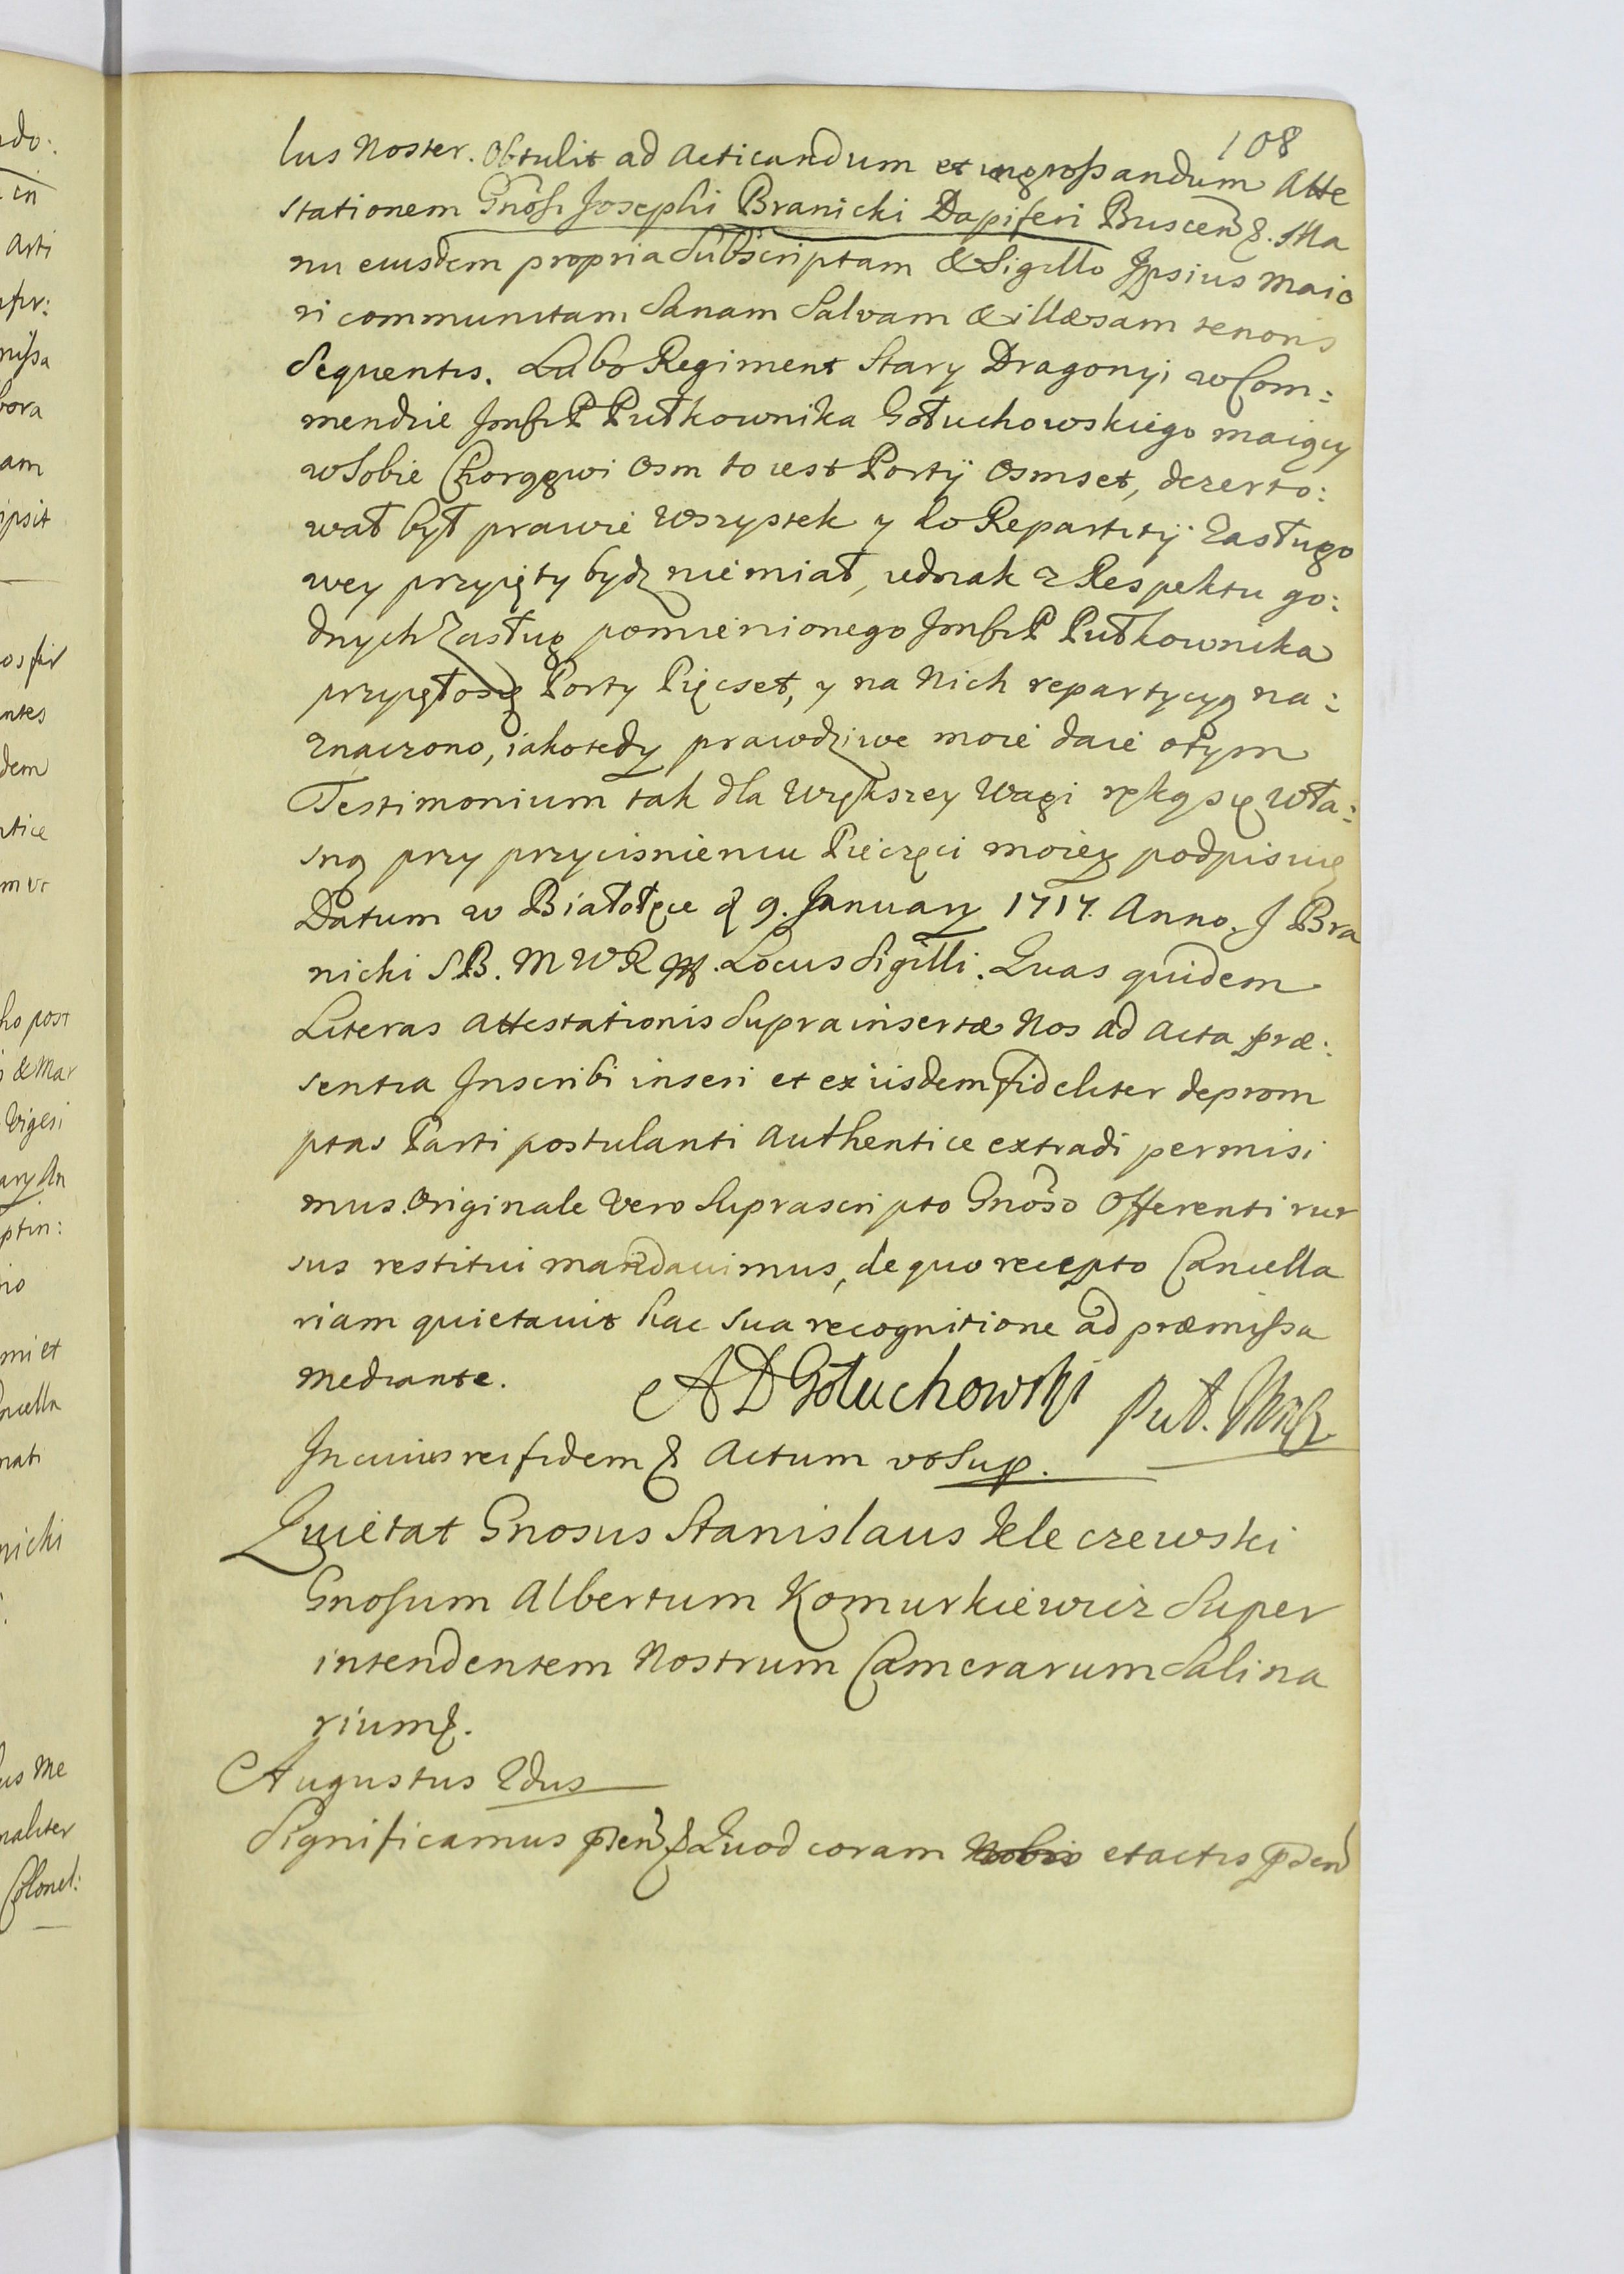 108
lus Noster. Obtulit ad Acticandum et ingrossandum Atte
stationem Gnosi Josephi Branicki Dapiferi Buscen &. Ma
nu eiusdem propria Subscriptam & Sigillo Ipsius maio
ri communitam Sanam Salvam & illæsam tenoris
Sequentis. Lubo Regiment Stary Dragonyi w Com:
mendzie Jmści P Pułkownika Gołuchowskiego maiący
w Sobie Chorągwi Osm to iest Portÿ Osmset, dezerto:
wał był prawie wszystek y do Repartitÿ Zasługo
wey przyięty bydz nie miał, iednak z Respektu go:
dnych Zasług pomienionego Jmści P Pułkownika
przyięto się Porty Pięcset, y na Nich repartycyą na:
znaczono, iako tedy prawdziwe moie daię o tym
Testimonium tak dla większey wagi ręką się wła:
sną przy przycisnieniu Pieczęci moiey podpisuię
Datum w Białołęce d 9. January 1717. Anno. J Bra
nicki S B. M W R mp. Locus Sigilli. Quas quidem
Literas Attestationis Supra insertæ Nos ad Acta præ:
sentia Inscribi inseri et ex iisdem fideliter deprom
ptas Parti postulanti authentice extradi permisi
mus. Originale vero Suprascripto Gnoso Offerenti rur
sus restitui mandavimus, de quo recepto Cancella
riam quietavit hac sua recognitione ad præmissa
mediante. A D Gołuchowski Puł. Mnp
In cuius rei fidem & Actum ut Sup.
Quietat Gnosus Stanislaus Kele czewski
Gnosum Albertum Komurkiewicz Super
intendentem Nostrum Camerarum Salina
rium &.
Augustus 2dus
Significamus psen & Quod coram Nobis et actis psen